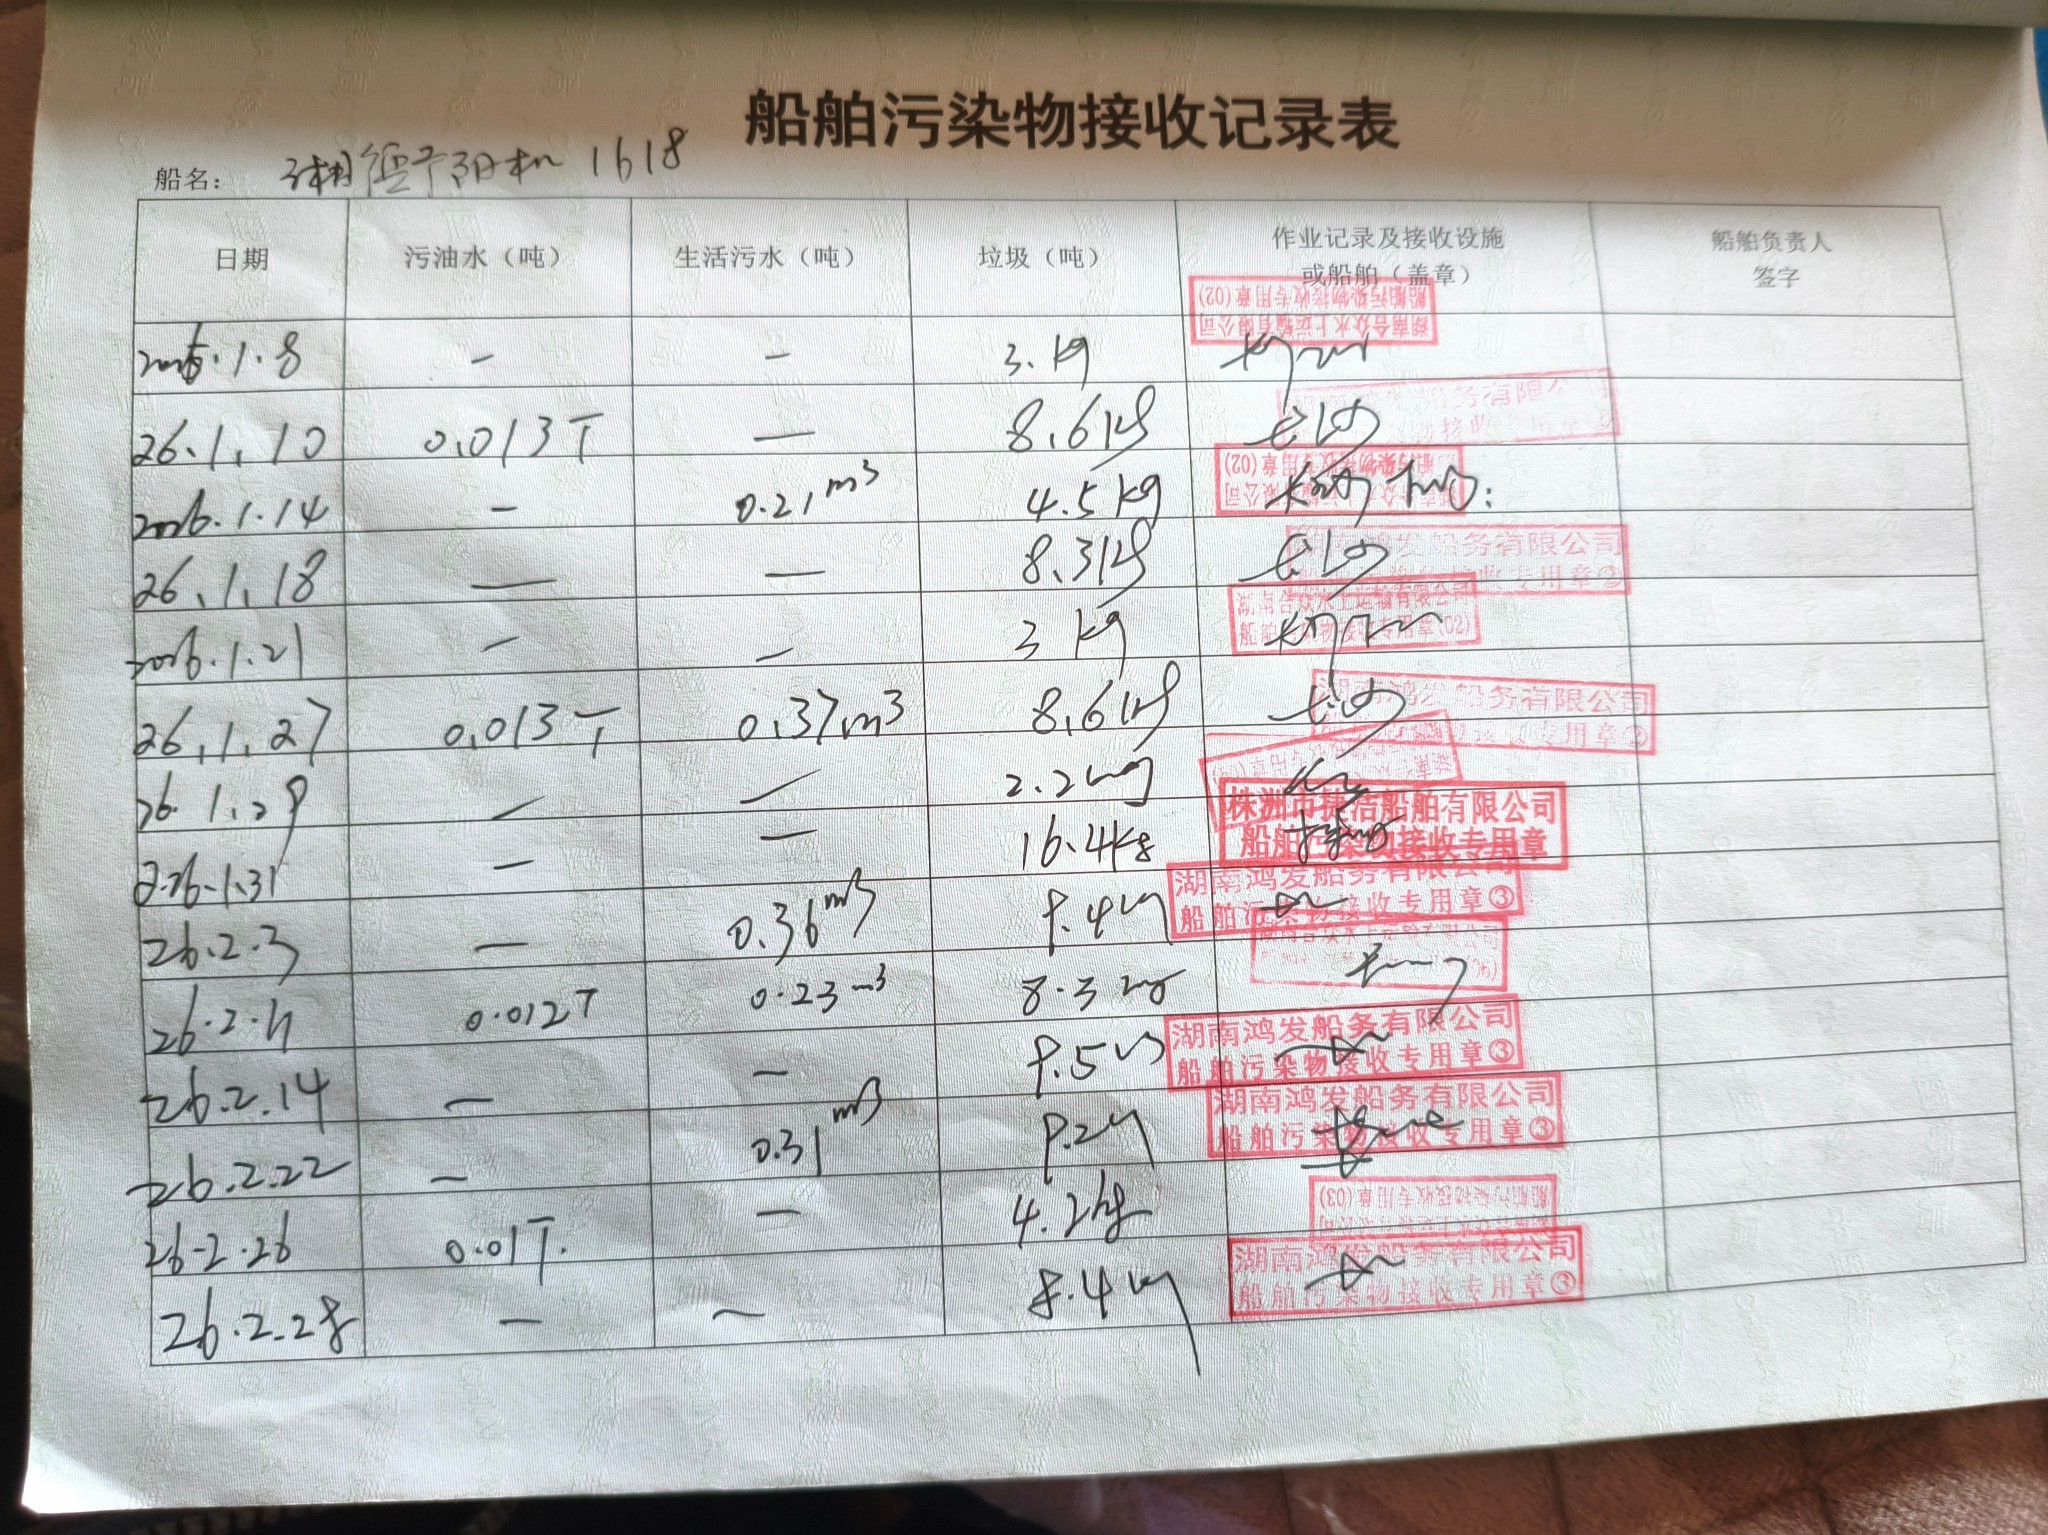 船舶污染物接收记录表
船名： 湘 机 1618
日期 污油水（吨） 生活污水（吨） 垃圾（吨） 作业记录及接收设施或船舶（盖章） 船舶负责人签字
湖南合众水上运输有限公司
船舶污染物接收专用章(02)
2026.1.8 — — 3.kg
26.1.10 0.013T — 8.6kg
务有限公
2026.1.14 — 0.21m³ 4.5kg
船舶污染物接收专用章(02)
26.1.18 — — 8.3kg
湖南鸿发船务有限公司
接收专用章②
2026.1.21 — — 3kg
湖南合众水上运输有限公司
船舶污染物接收专用章(02)
26.1.27 0.013T 0.37m³ 8.6kg
湖南鸿发船务有限公司
专用章②
26.1.29 — — 2.2kg
2026.1.31 — — 16.4kg
株洲市捷洁船舶有限公司
船舶污染物接收专用章
26.2.3 — 0.36m³ 9.4kg
湖南鸿发船务有限公司
船舶污染物接收专用章③
26.2.11 0.012T 0.23m³ 8.3kg
26.2.14 — — 9.5kg
湖南鸿发船务有限公司
船舶污染物接收专用章③
26.2.22 — 0.31m³ 9.2kg
湖南鸿发船务有限公司
船舶污染物接收专用章③
26.2.26 0.01T. — 4.2kg
船舶污染物接收专用章(03)
26.2.28 — — 8.4kg
湖南鸿发船务有限公司
船舶污染物接收专用章③